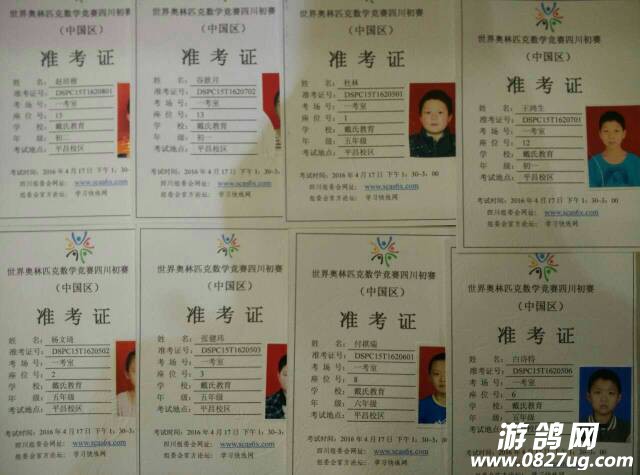 世界奥林匹克数学竞赛四川初赛
（中国区）
准考证
姓 名：赵珩樹
准考证号：DSPC15T1620801
考 场 号：一考室
座 位 号：15
学 校：戴氏教育
年 级：初二
考试地点：平昌校区
考试时间：2016年4月17日 下午1：30-3：00
四川组委会网址：www.scas6x.com
组委会官方论坛：学习快线网
世界奥林匹克数学竞赛四川初赛
（中国区）
准考证
姓 名：谷歆月
准考证号：DSPC15T1620702
考 场 号：一考室
座 位 号：13
学 校：戴氏教育
年 级：初一
考试地点：平昌校区
考试时间：2016年4月17日 下午1：30-3：00
四川组委会网址：www.scas6x.com
组委会官方论坛：学习快线网
世界奥林匹克数学竞赛四川初赛
（中国区）
准考证
姓 名：杜林
准考证号：DSPC15T1620501
考 场 号：一考室
座 位 号：1
学 校：戴氏教育
年 级：五年级
考试地点：平昌校区
考试时间：2016年4月17日 下午1：30-3：00
四川组委会网址：www.scas6x.com
组委会官方论坛：学习快线网
世界奥林匹克数学竞赛四川初赛
（中国区）
准考证
姓 名：王鸿生
准考证号：DSPC15T1620701
考 场 号：一考室
座 位 号：12
学 校：戴氏教育
年 级：初一
考试地点：平昌校区
考试时间：2016年4月17日 下午1：30-3：00
四川组委会网址：www.scas6x.com
组委会官方论坛：学习快线网
世界奥林匹克数学竞赛四川初赛
（中国区）
准考证
姓 名：杨文琦
准考证号：DSPC15T1620502
考 场 号：一考室
座 位 号：2
学 校：戴氏教育
年 级：五年级
考试地点：平昌校区
考试时间：2016年4月17日 下午1：30-3：00
四川组委会网址：www.scas6x.com
组委会官方论坛：学习快线网
世界奥林匹克数学竞赛四川初赛
（中国区）
准考证
姓 名：张健玮
准考证号：DSPC15T1620503
考 场 号：一考室
座 位 号：3
学 校：戴氏教育
年 级：五年级
考试地点：平昌校区
考试时间：2016年4月17日 下午1：30-3：00
四川组委会网址：www.scas6x.com
组委会官方论坛：学习快线网
世界奥林匹克数学竞赛四川初赛
（中国区）
准考证
姓 名：付祺瑞
准考证号：DSPC15T1620601
考 场 号：一考室
座 位 号：8
学 校：戴氏教育
年 级：六年级
考试地点：平昌校区
考试时间：2016年4月17日 下午1：30-3：00
四川组委会网址：www.scas6x.com
组委会官方论坛：学习快线网
世界奥林匹克数学竞赛四川初赛
（中国区）
准考证
姓 名：白诗特
准考证号：DSPC15T1620506
考 场 号：一考室
座 位 号：6
学 校：戴氏教育
年 级：五年级
考试地点：平昌校区
考试时间：2016年4月17日
游鸽网
www.0827ug.com